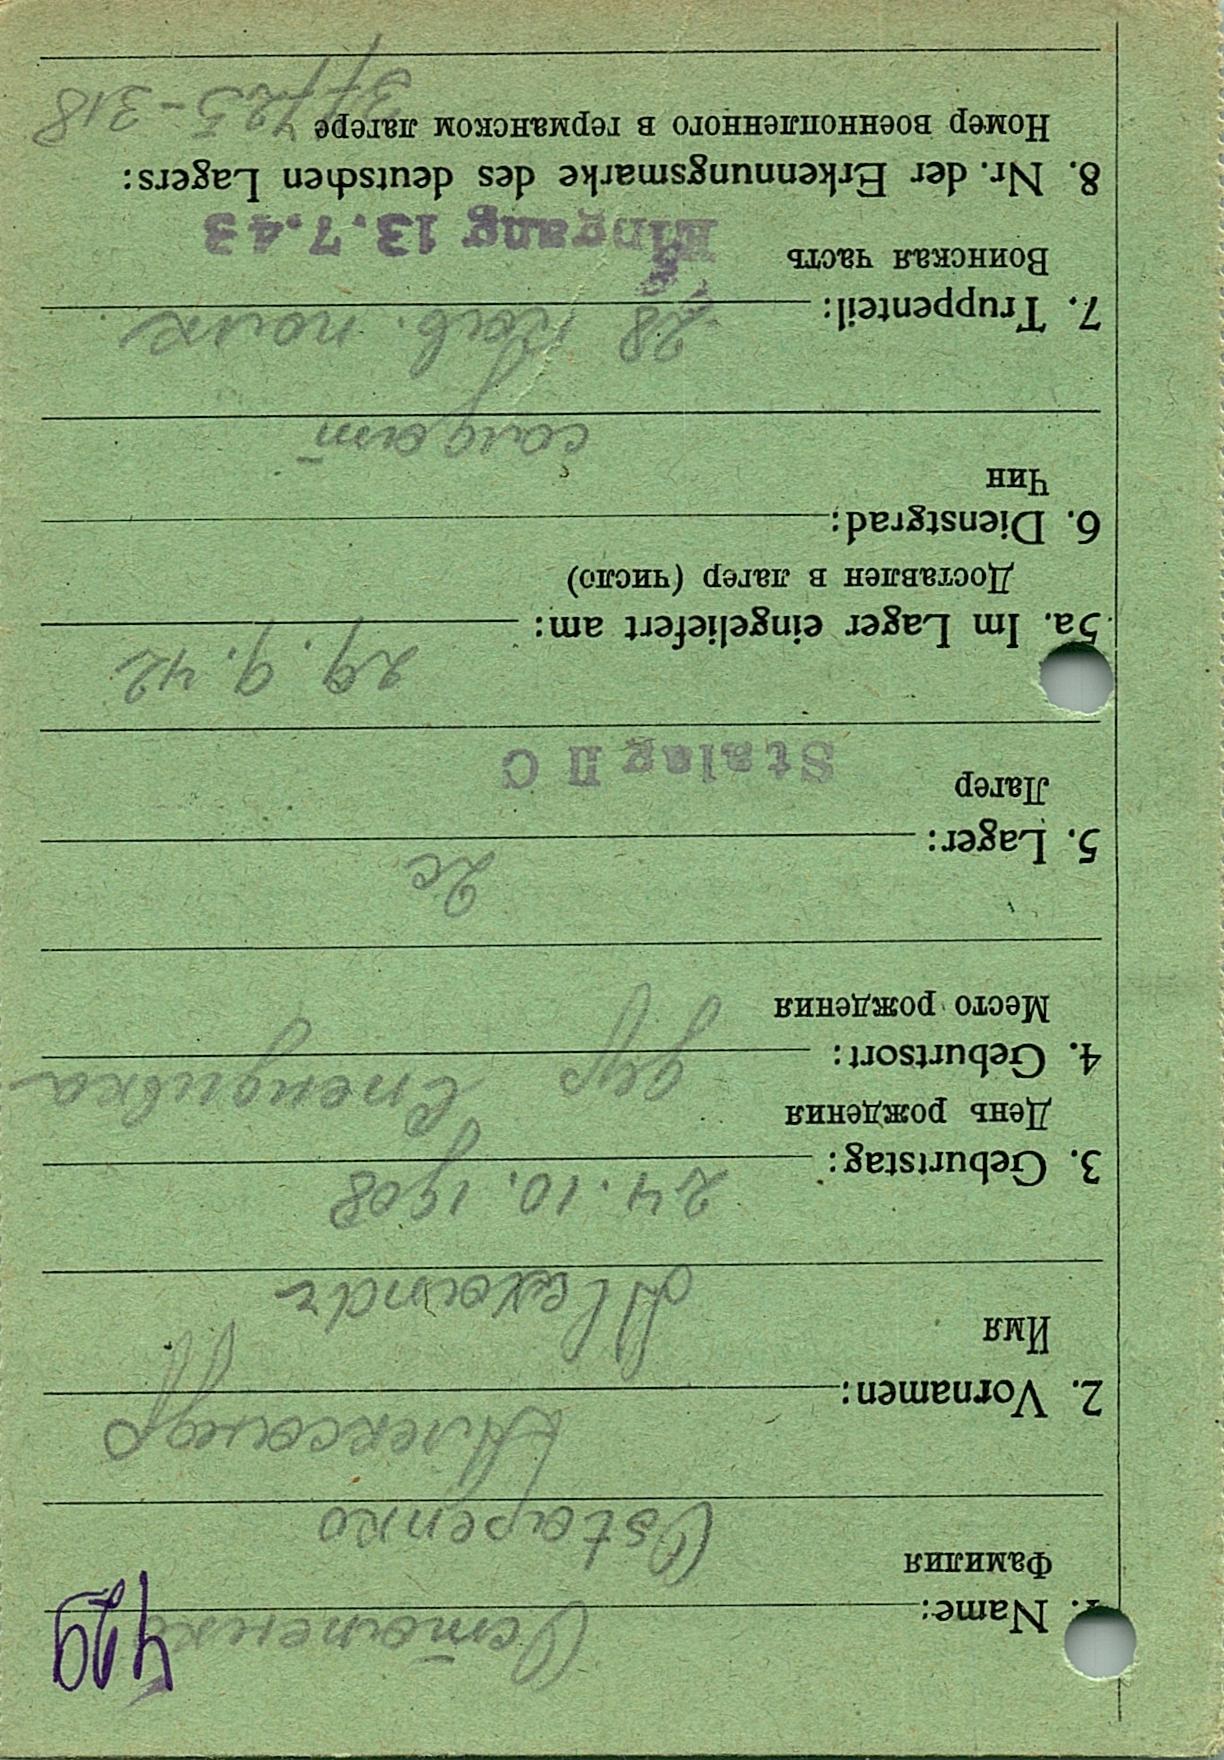 429
1. Name: Остапенко
Фамилия
Ostapenko
2. Vornamen: Александр
Имя
Alexandr
3. Geburtstag: 24.10.1908
День рождения
4. Geburtsort: дер
Место рождения
5. Lager: 2c
Лагер
Stalag II C
5a. Im Lager eingeliefert am: 29.9.42
Доставлен в лагер (число)
6. Dienstgrad:
Чин
солдат
7. Truppenteil: 28 кав. полк
Воинская часть
Eingang 13.7.43
8. Nr. der Erkennungsmarke des deutschen Lagers:
Номер военнопленного в германском лагере
37725-318